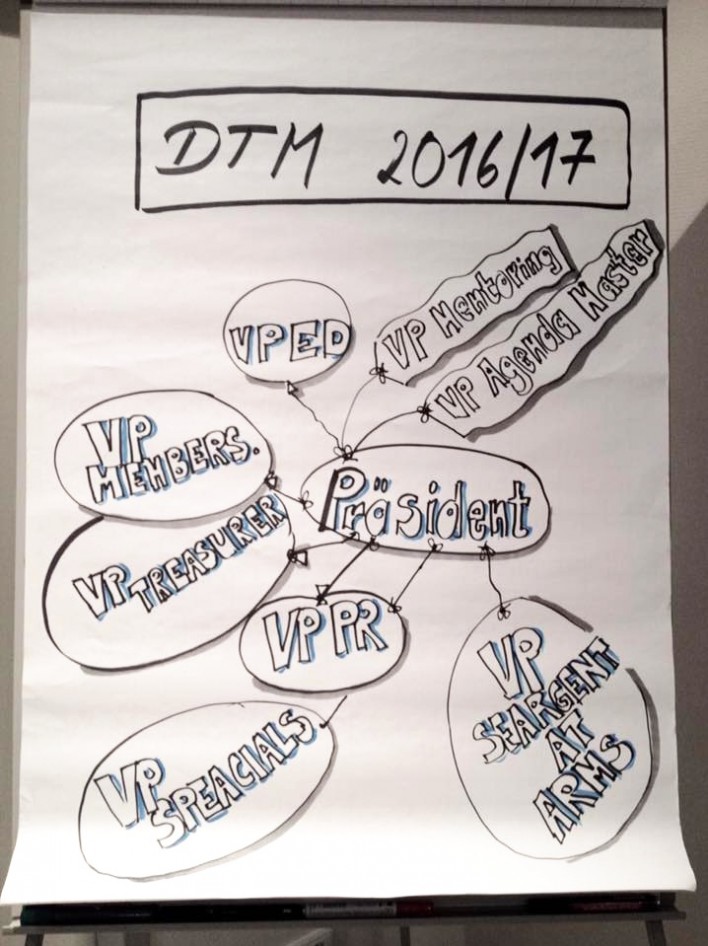 DTM 2016/17
VP Mentoring
VP Agenda Master
VPED
VP
MEMBERS.
Präsident
VP TREASURER
VP PR
VP
SEARGENT
AT
ARMS
VP
SPEACIALS